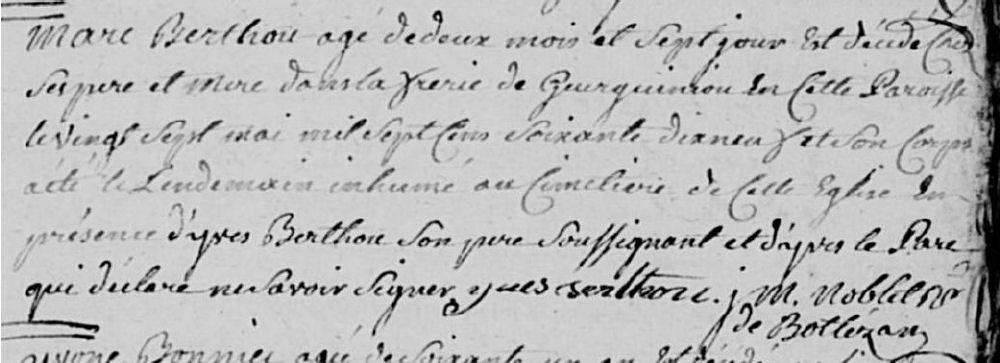 Marc Berthou agé de deux mois et Sept jour Est décédé Chés
Ses pere et mere dans la frerie de Geurguiniou En Cette Paroisse
le vingt Sept mai mil Sept Cens Soixante dixneuf et Son Corps
a été le Lendemain inhumé au Cimetiere de Cette Eglise En
présence d'yves Berthou Son pere Soussignant et d'yves le Parc
qui déclare ne Savoir Signer yves berthou. j. M. Noblet Rr
de Botlézan
yvone Bonniec agée de Soixante un an Est décédée